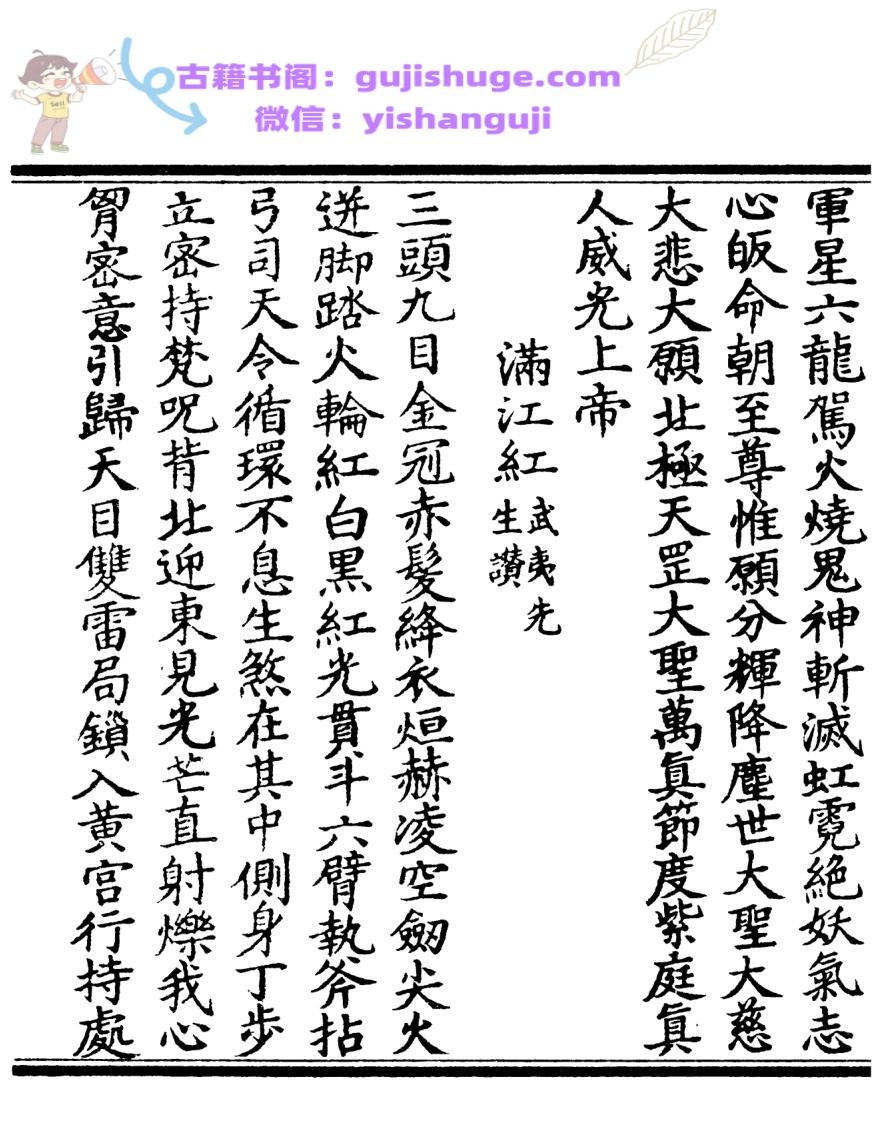 古籍书阁：gujishuge.com
微信：yishanguji
軍星六龍駕火燒鬼神斬滅虹霓絕妖氣志
心皈命朝至尊惟願分輝降塵世大聖大慈
大悲大願北極天罡大聖萬眞節度紫庭眞
人威光上帝
滿江紅武夷先生讚
三頭九目金冠赤髮絳衣烜赫凌空劒尖火
迸脚踏火輪紅白黑紅光貫斗六臂執斧拈
弓司天令循環不息生煞在其中側身丁步
立密持梵呪背北迎東見光芒直射爍我心
胷密意引歸天目雙雷局鎖入黃宮行持處